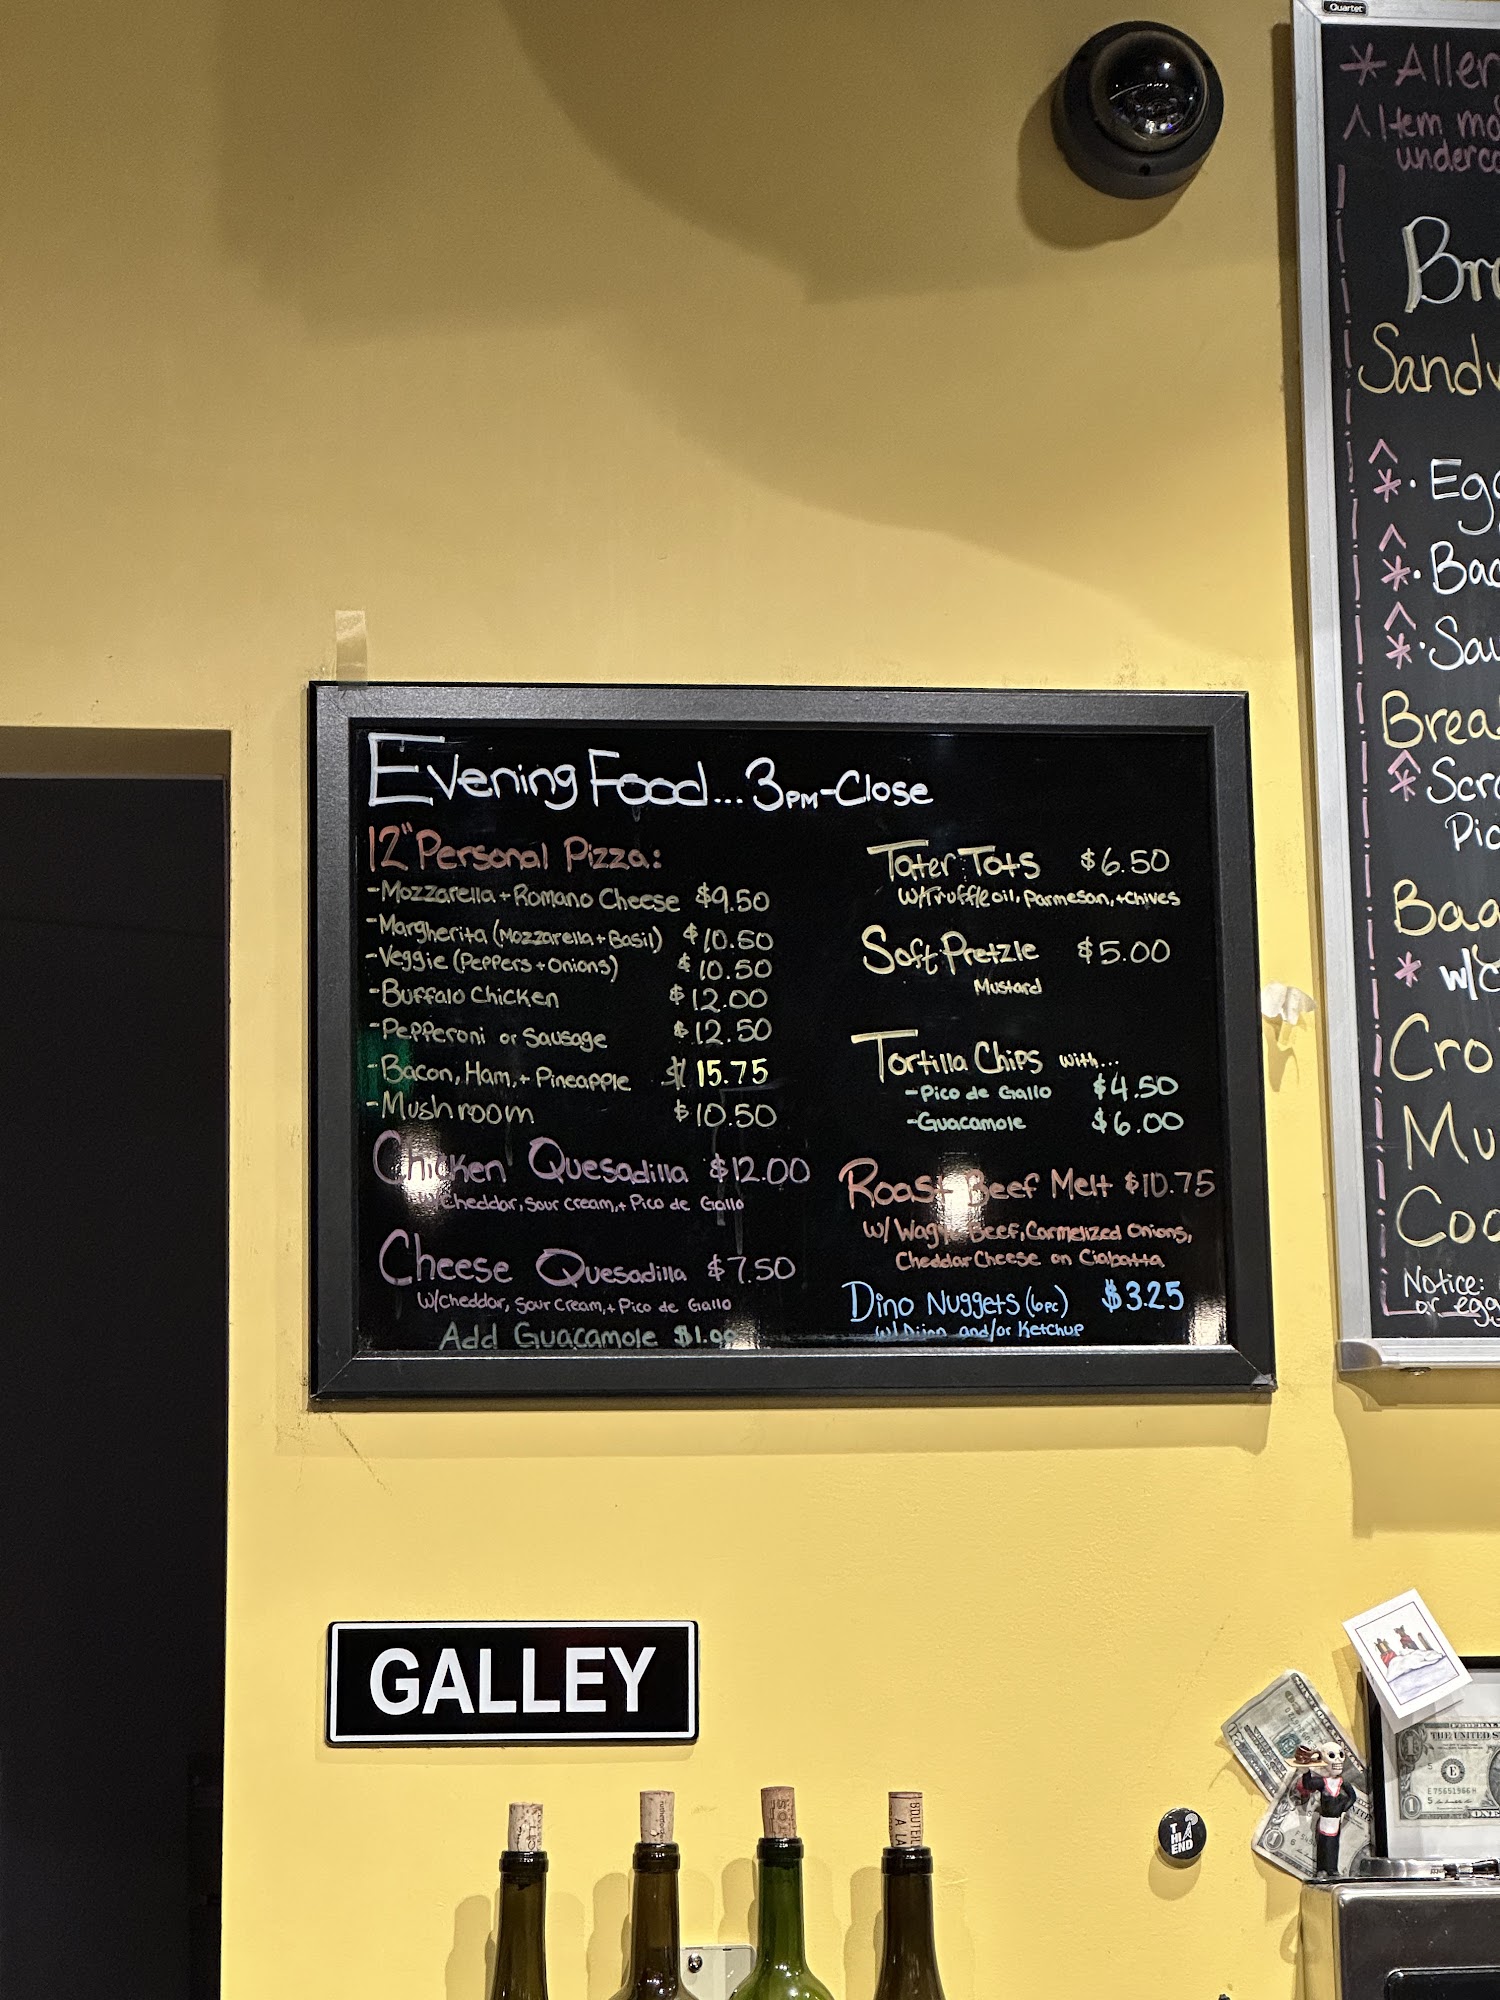 Evening Food...3PM-Close
12" Personal Pizza:
-Mozzarella + Romano Cheese $9.50
-Margherita (Mozzarella + Basil) $10.50
-Veggie (Peppers + Onions) $10.50
-Buffalo Chicken $12.00
-Pepperoni or Sausage $12.50
-Bacon, Ham, + Pineapple $15.75
-Mushroom $10.50
Chicken Quesadilla $12.00
w/Cheddar, Sour Cream, + Pico de Gallo
Cheese Quesadilla $7.50
w/Cheddar, Sour Cream, + Pico de Gallo
Add Guacamole $1.00
Tater Tots $6.50
w/Truffle oil, Parmesan, + Chives
Soft Pretzle $5.00
Mustard
Tortilla Chips with...
-Pico de Gallo $4.50
-Guacamole $6.00
Roast Beef Melt $10.75
w/ Beef, Carmelized Onions,
Cheddar Cheese on Ciabatta
Dino Nuggets (6pc) $3.25
w/ Dijon and/or Ketchup
Quartet
* Aller
^ Item
underco
Br
Sandw
^
*· Egg
^
*· Bac
^
*· Sau
Brea
^
* Scr
Pic
Bag
* w/c
Cro
Mu
Coo
Notice:
or egg
GALLEY
THE END
THE UNITED S
E 75651966 H
ONE